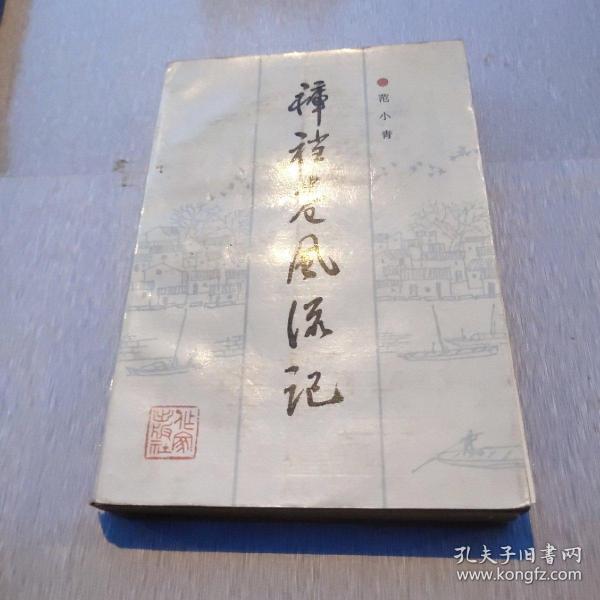 裤裆巷风流记
范小青
作家
出版社
孔夫子旧书网
www.kongfz.com